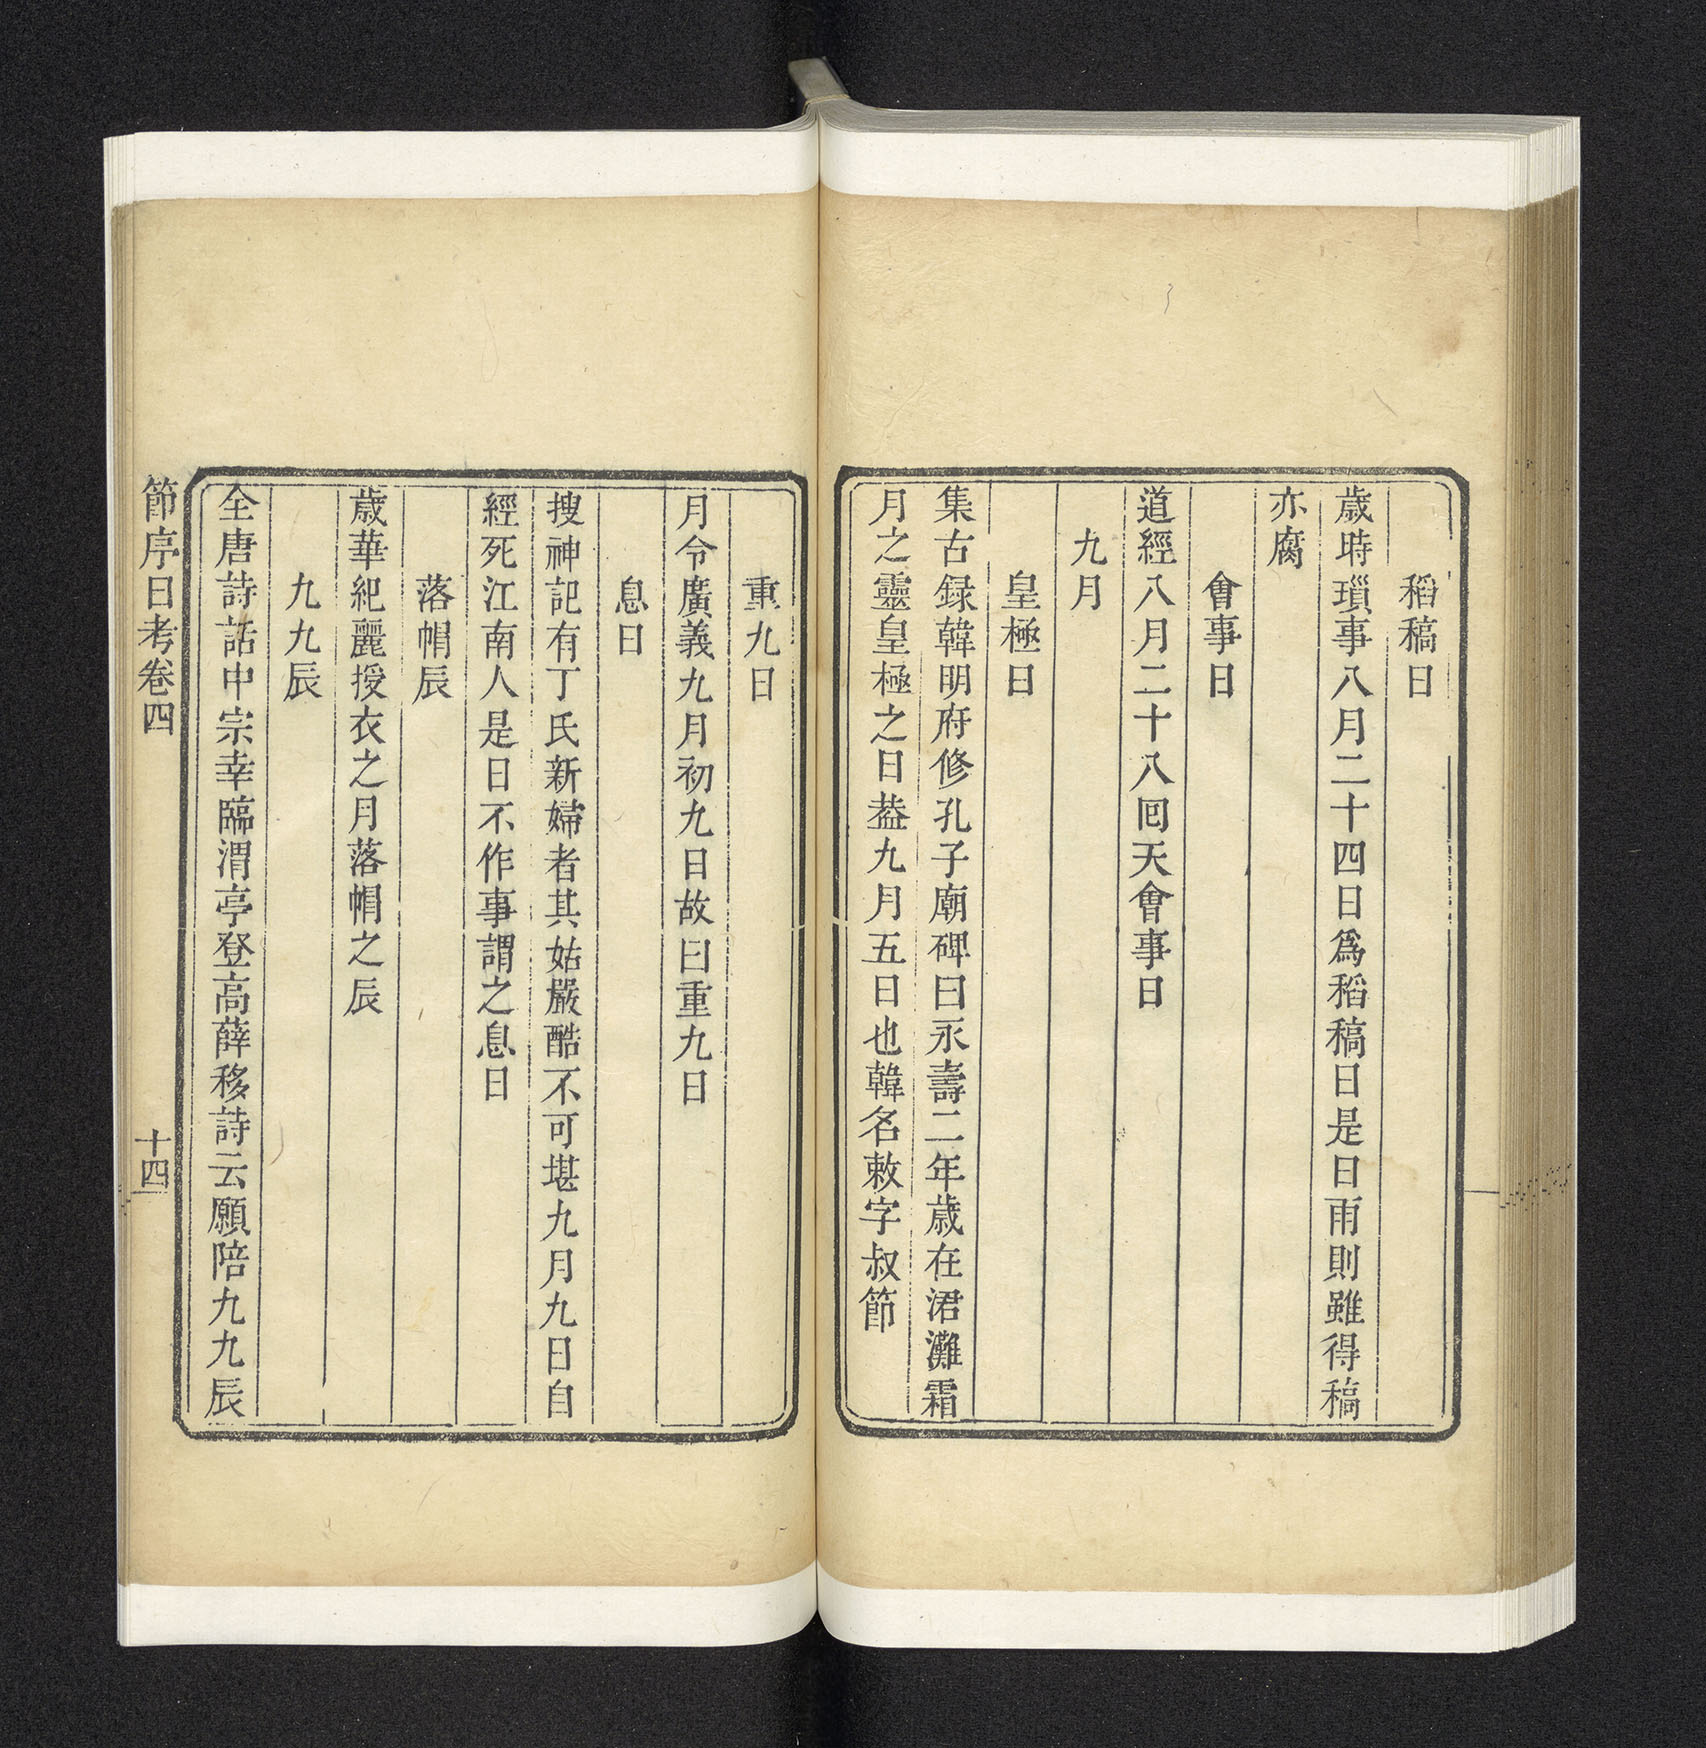 稻稿日
歲時瑣事八月二十四日爲稻稿日是日雨則雖得稿
亦腐
會事日
道經八月二十八囘天會事日
九月
皇極日
集古録韓明府修孔子廟碑曰永壽二年歲在涒灘霜
月之靈皇極之日葢九月五日也韓名敕字叔節
重九日
月令廣義九月初九日故曰重九日
息日
搜神記有丁氏新婦者其姑嚴酷不可堪九月九日自
經死江南人是日不作事謂之息日
落帽辰
歲華紀麗授衣之月落帽之辰
九九辰
全唐詩話中宗幸臨渭亭登高薛稷詩云願陪九九辰
節序日考卷四
十四